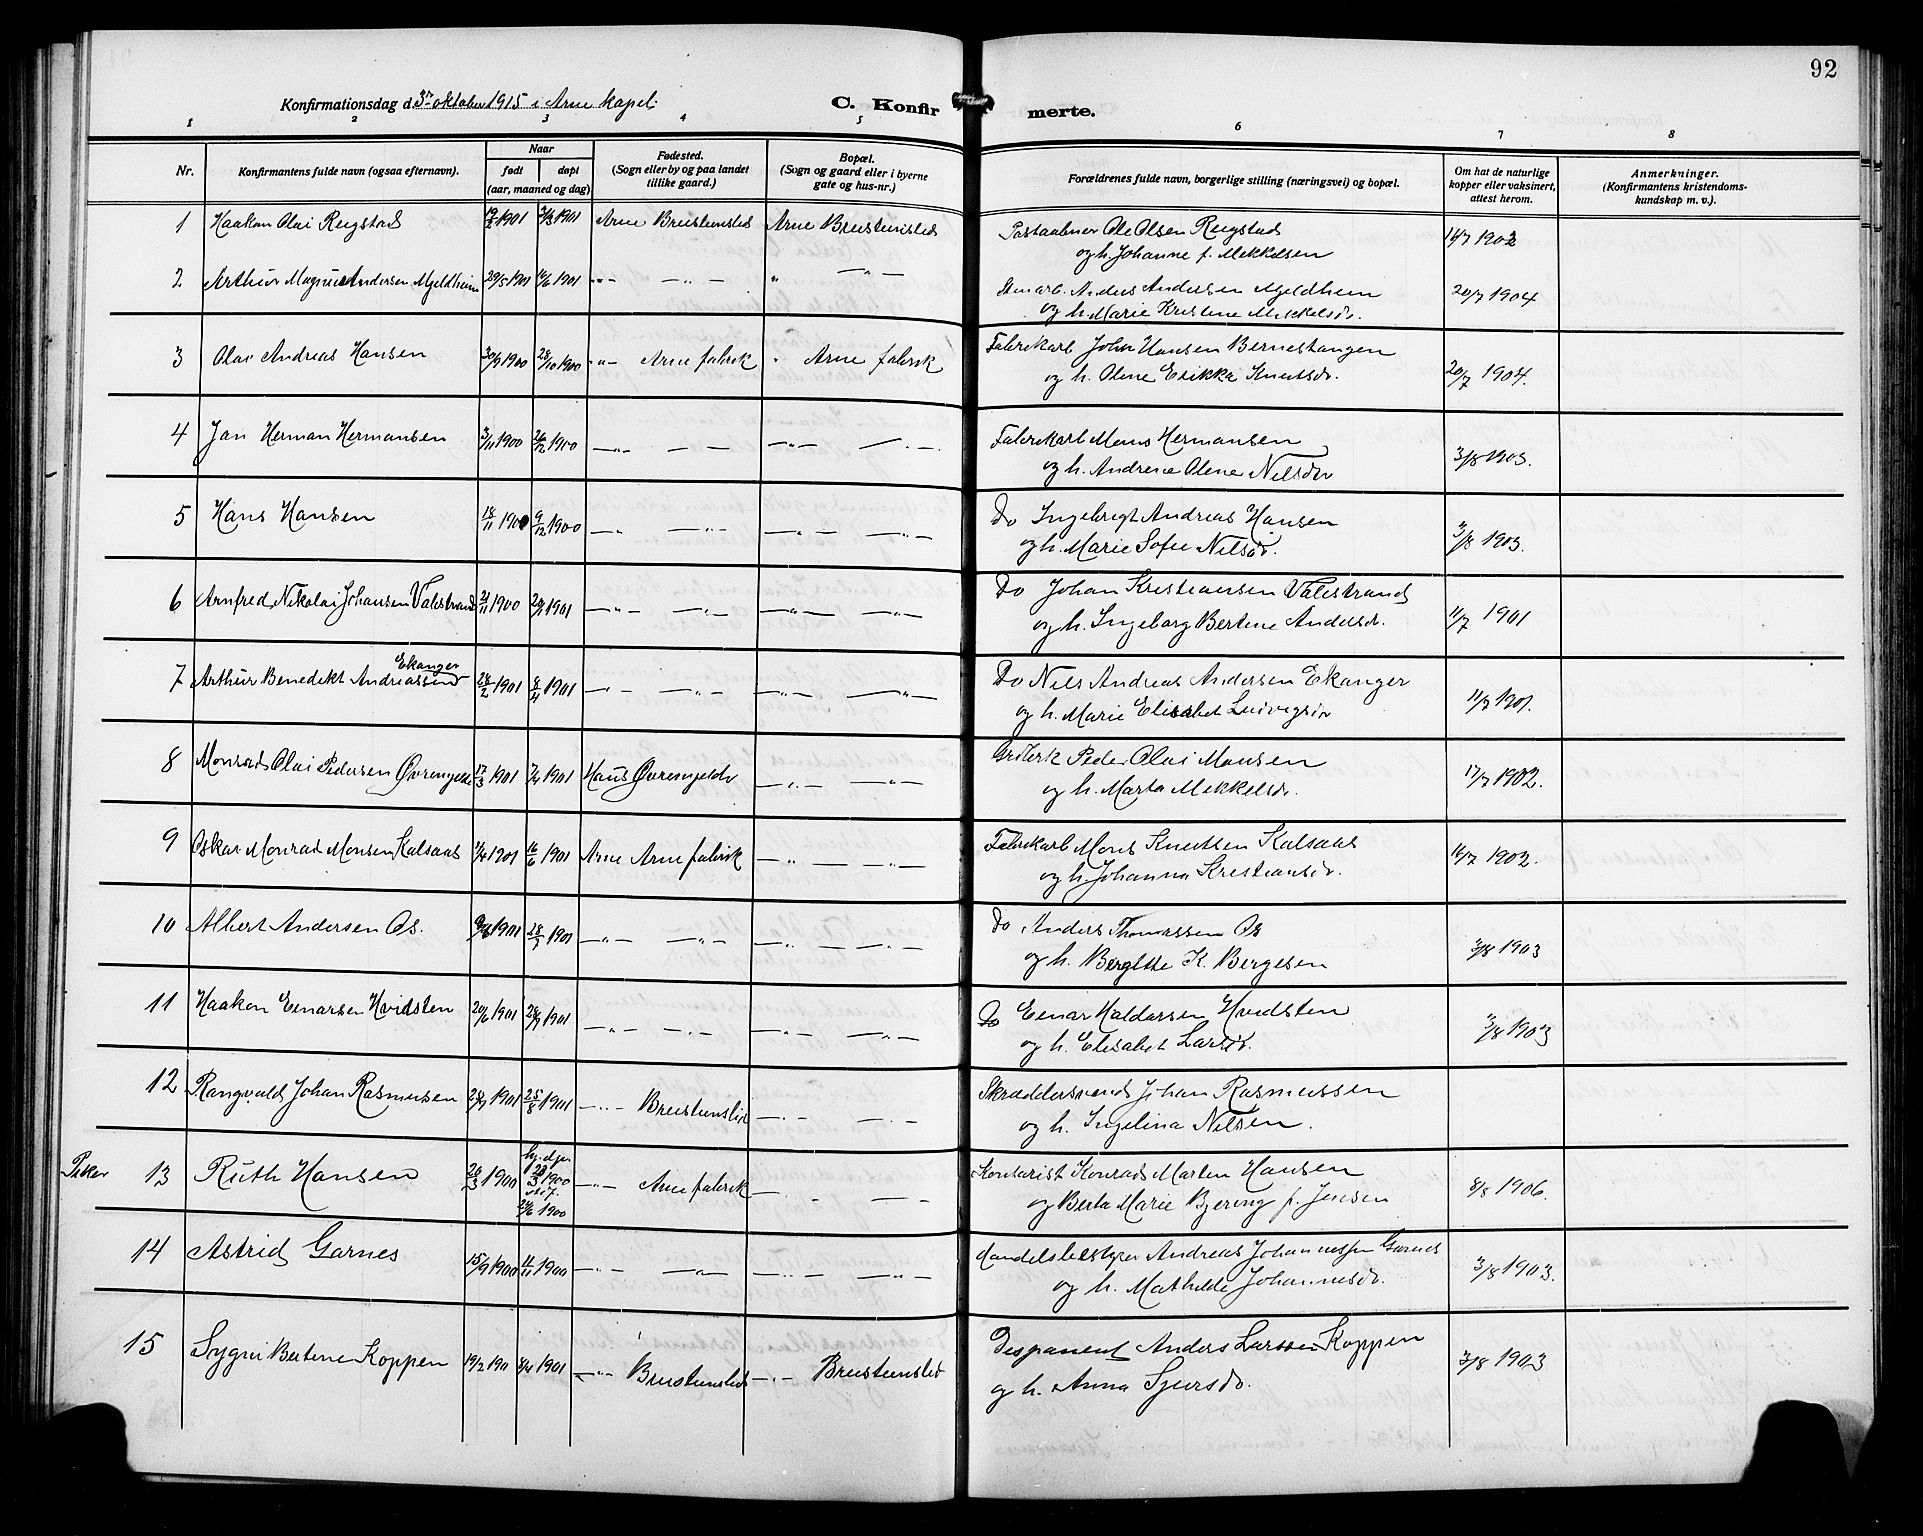 92
Konfirmationsdag d. 3die oktober 1915 i Arne kapel. C. Konfirmerte.
1 2 3 4 5 6 7 8
Nr. Konfirmantens fulde navn (ogsaa efternavn). Naar født døpt (aar, maaned og dag) Fødested. (Sogn eller by og paa landet tillike gaard.) Bopæl. (Sogn og gaard eller i byerne gate og hus-nr.) Forældrenes fulde navn, borgerlige stilling (næringsvei) og bopæl. Om hat de naturlige kopper eller vaksinert, attest herom. Anmerkninger. (Konfirmantens kristendomskundskap m. v.).
1 Haakon Olai Rugstad 1901 1901 Arne Breistensled Arne Breistensled Ole Olsen Rugstad 1902
og h. Johanne f. Mikkelsen
2 Arthur Magnus Andersen Mjeldheim 29/5 1901 16/6 1901 -"- -"- " -"- Stenarb. Anders Andersen Mjeldheim 20/7 1904
og h. Marie Kristine Mikkelsdr.
3 Olav Andreas Hansen 30/9 1900 28/10 1900 -"- Arne fabrik " Arne fabrik Fabrikarb John Hansen Bernestangen
og h. Oline Erikka Knutsdr. 20/7 1904.
4 Jan Herman Hermansen 3/11 1900 26/12 1900 -"- - - -"- - Fabrikarb Mons Hermansen
og h. Andrea Oline Nilsdr 3/8 1903.
5 Hans Hansen 18/11 1900 9/12 1900 -"- -"- -"- -"- Do Ingebrigt Andreas Hansen
og h. Marie Sofie Nilsdr. 3/8 1903.
6 Arnfred Nikolai Johansen Valestrand 21/11 1900 1901 -"- -"- -"- -"- Do Johan Kristiansen Valestrand
og h. Ingeborg Bertine Andersdr. 11/7 1901
7 Arthur Benedikt Andreassen Ekanger 28/2 1901 8/4 1901 -"- -"- -"- -"- Do Nils Andreas Andersen Ekanger
og h. Marie Elisabet Ludvigsdr 11/7 1901.
8 Monrad Olai Pedersen Øvremjelde 17/3 1901 7/4 1901 Haus Øvremjelde -"- -"- Peder Olai Monsen
og h. Marta Mikkelsdr. 17/7 1902.
9 Oskar Monrad Monsen Kalsaas 1901 16/6 1901 Arne Arne fabrik -"- -"- Fabrikarb Mons Knutsen Kalsaas
og h. Johanna Kristiansdr. 16/7 1902.
10 Albert Andersen Os. 9/6 1901 28/7 1901 -"- -"- -"- -"- Do Anders Thomassen Os
og h. Bergitte K. Bergesen 3/8 1903
11 Haakon Einarsen Hvidsten 20/6 1901 28/7 1901 -"- -"- -"- -"- Do Einar Haldorsen Hvidsten
og h. Elisabet Larsdr. 3/8 1903
12 Rangvald Johan Rasmusen 1901 25/8 1901 -"- Breistensled -"- -"- Skræddersvend Johan Rasmussen
og h. Ingelina Nilsen.
Piker 13 Ruth Hansen 28/3 1900 hj. døpt 28/3 1900 24/6 1900 -"- Arne fabrik -"- -"- Kontorist Konrad Martin Hansen
og Berta Marie Bjering f. Jensen 8/8 1906.
14 Astrid Garnes 15/9 1900 11/11 1900 -"- -"- -"- -"- Handelsbestyrer Andreas Johannessen Garnes
og h. Mathilde Johannesdr. 3/8 1903.
15 Sygni Bertine Koppen 19/2 1901 8/4 1901 -"- Breistensled -"- Breistensled Disponent Anders Larssen Koppen
og h. Anna Sjursdr. 3/8 1903